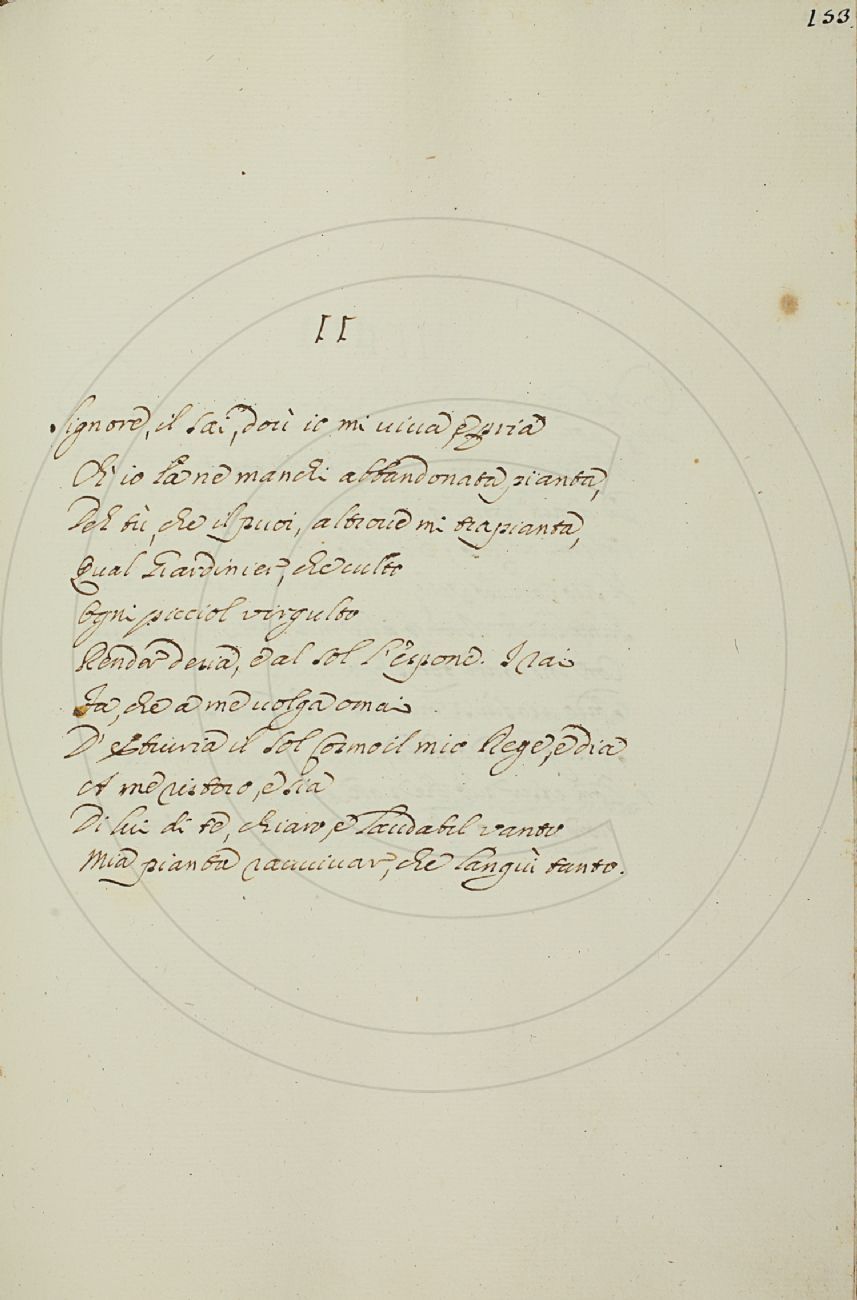 153
II
Signore, il sai, dov' io mi viva, e pria
Ch' io là ne manchi abbandonata pianta,
Deh tù, che il puoi, altrove mi trapianta,
Qual Giardinier, che culto
Ogni picciol virgulto
Render desia, e al sol l'espone. I rai
Fa, che a me volga omai
D' Etruria il Sol Cosmo il mio Rege, e dia
A me ristoro, e sia
Di lui di te, chiaro, e laudabil vanto
Mia pianta ravvivar, che languì tanto.